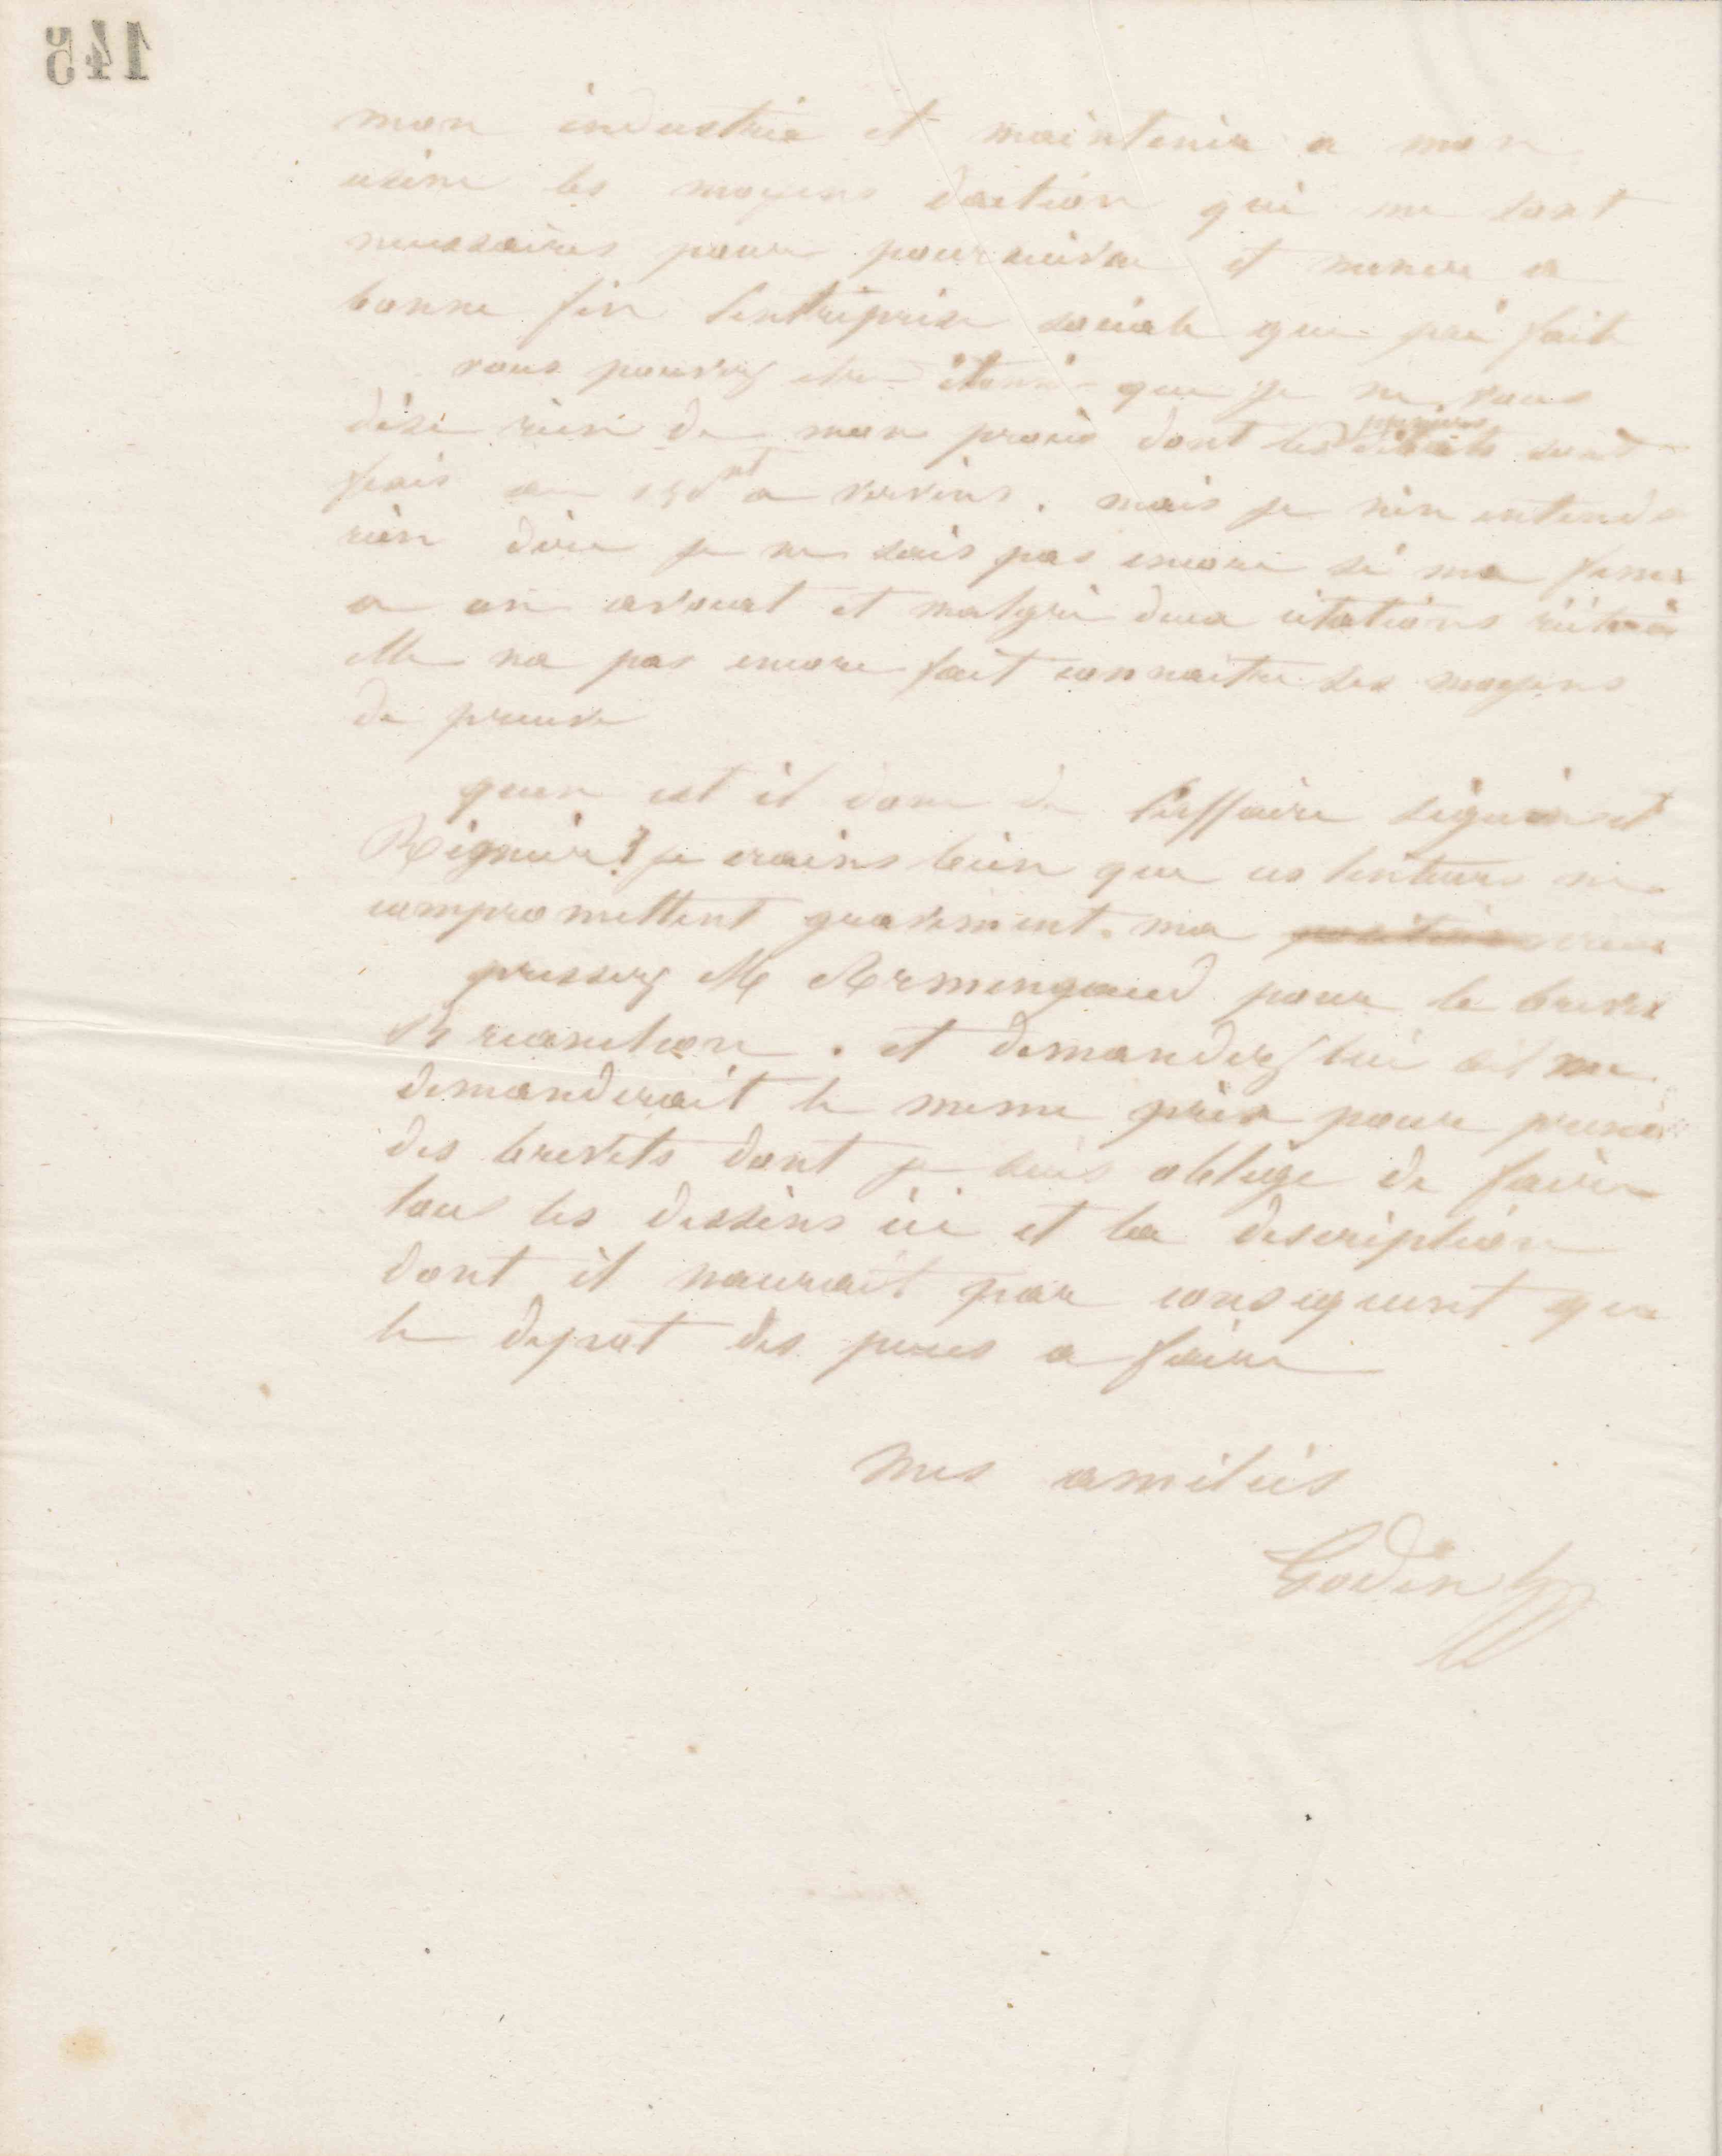 145
mon industrie et maintenir a mon
usine les moyens daction qui me sont
necessaires pour poursuivre et mener a
bonne fin lentreprise sociale que jai faite
vous pouvez etre étonné que je ne vous
dise rien de mon procès dont les débats sont
fixés au a vervins. mais je nen entends
rien dire je ne sais pas encore si ma feme
a un avocat et malgré deux citations
elle na pas encore fait connaitre ses moyens
de preuve
quen est il donc de laffaire seguin et
Régnier? je crains bien que ces lenteurs ne
compromettent gravement. ma
pressez Mr Armengaud pour le brevet
Brianchon. et demandez lui sil me
demanderait le meme prix pour prendre
des brevets dont je suis obligé de faire
tous les dessins ici et la description
dont il naurait par consequent que
le depot des pieces a faire
mes amitiés
Godin